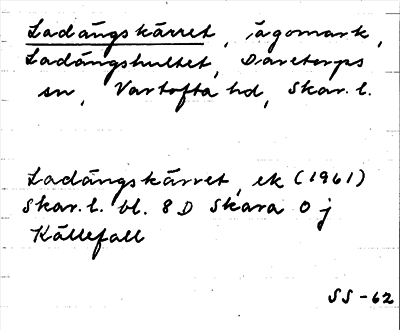 Ladängskärret, ägomark,
Ladängshultet, Daretorps
sn, Vartofta hd, Skar. l.
Ladängskärret, ek (1961)
Skar. l. bl. 8 D Skara 0 j
Källefall
SS-62